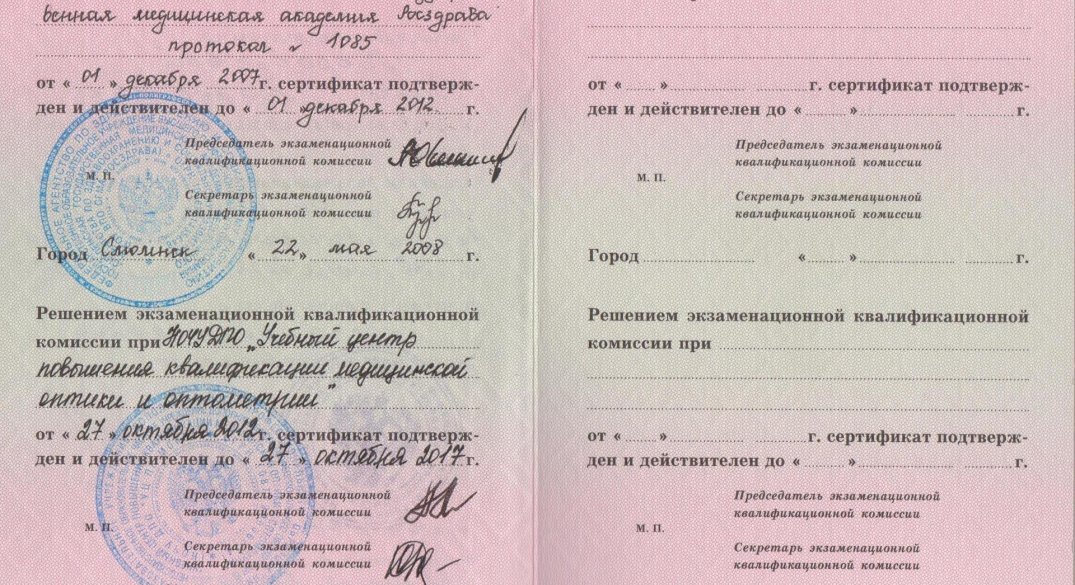 венная медицинская академия Росздрава
протокол № 1085
от « 01 » декабря 2007 г. сертификат подтверж-
ден и действителен до « 01 » декабря 2012 г.
Председатель экзаменационной
квалификационной комиссии
М. П.
Секретарь экзаменационной
квалификационной комиссии
Город Смоленск « 22 » мая 2008 г.
Решением экзаменационной квалификационной
комиссии при НОЧУДПО „Учебный центр
повышения квалификации медицинской
оптики и оптометрии"
от « 27 » октября 2012 г. сертификат подтверж-
ден и действителен до « 27 » октября 2017 г.
Председатель экзаменационной
квалификационной комиссии
М. П.
Секретарь экзаменационной
квалификационной комиссии
от « » г. сертификат подтверж-
ден и действителен до « » г.
Председатель экзаменационной
квалификационной комиссии
М. П.
Секретарь экзаменационной
квалификационной комиссии
Город « » г.
Решением экзаменационной квалификационной
комиссии при
от « » г. сертификат подтверж-
ден и действителен до « » г.
Председатель экзаменационной
квалификационной комиссии
М. П.
Секретарь экзаменационной
квалификационной комиссии